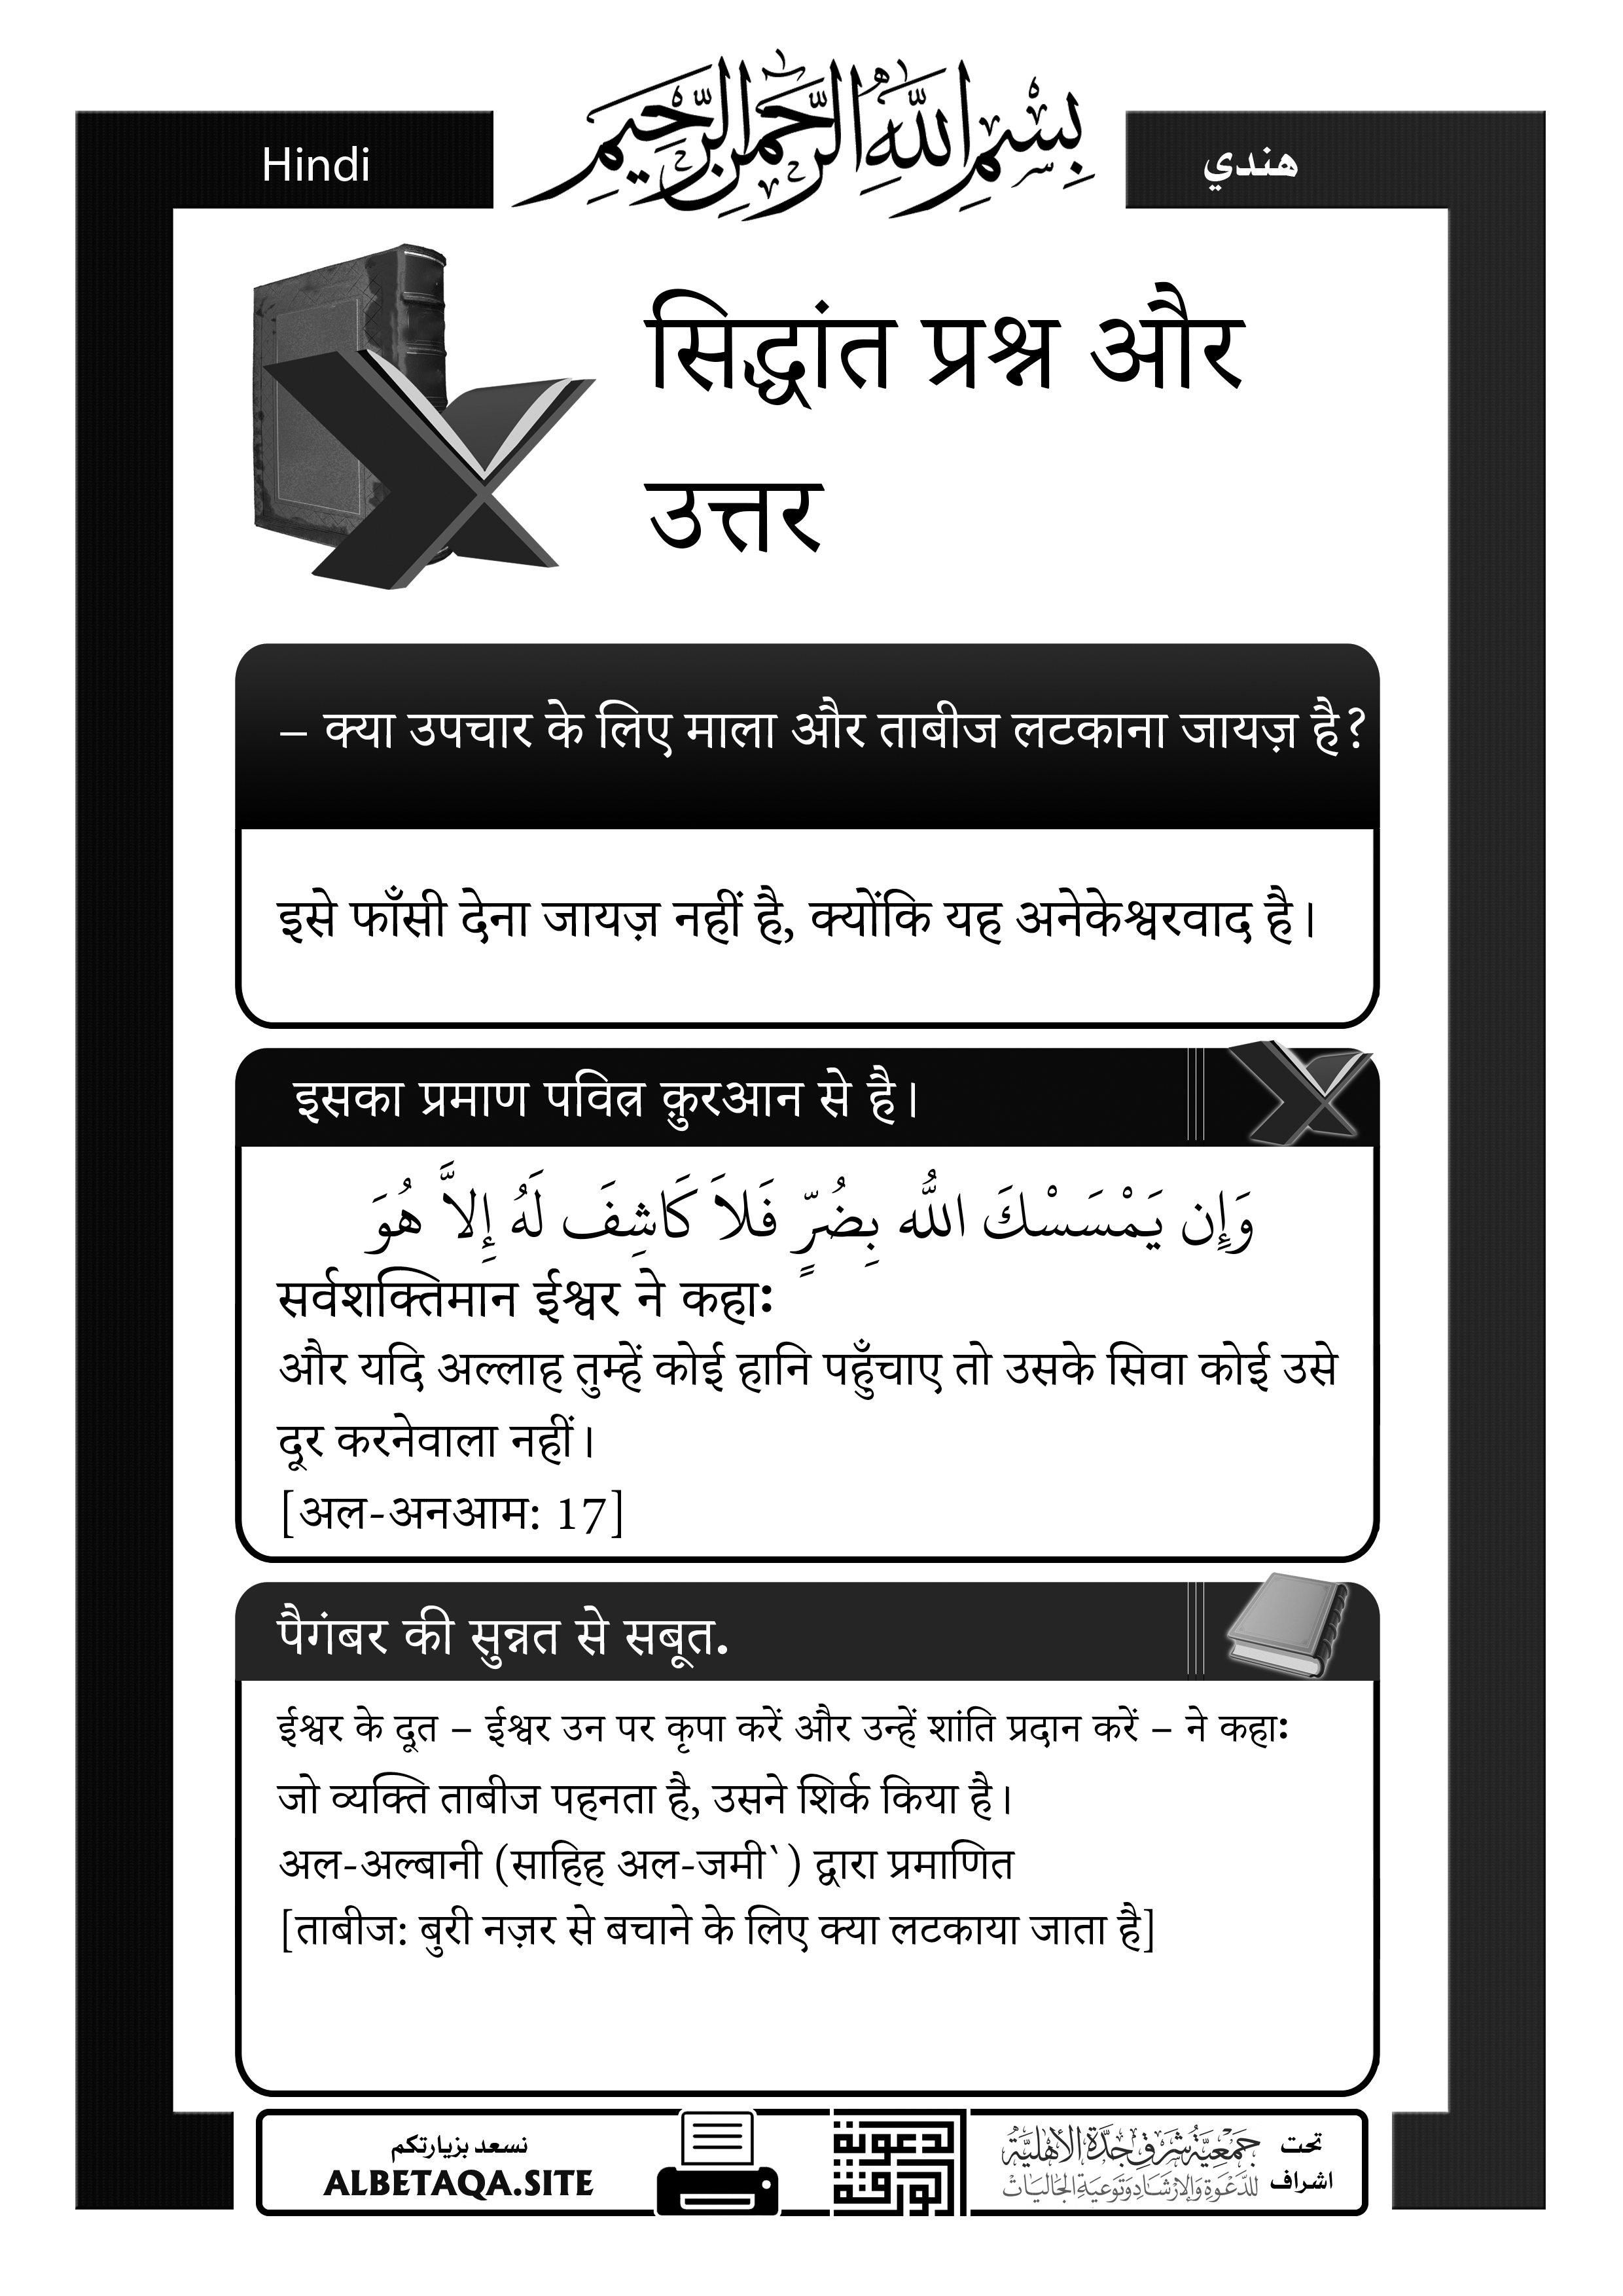 Hindi
بِسْمِ اللَّهِ الرَّحْمَٰنِ الرَّحِيمِ
هندي
सिद्धांत प्रश्न और
उत्तर
– क्या उपचार के लिए माला और ताबीज लटकाना जायज़ है?
इसे फाँसी देना जायज़ नहीं है, क्योंकि यह अनेकेश्वरवाद है।
इसका प्रमाण पवित्र क़ुरआन से है।
وَإِن يَمْسَسْكَ اللّهُ بِضُرٍّ فَلاَ كَاشِفَ لَهُ إِلاَّ هُوَ
सर्वशक्तिमान ईश्वर ने कहा:
और यदि अल्लाह तुम्हें कोई हानि पहुँचाए तो उसके सिवा कोई उसे
दूर करनेवाला नहीं।
[अल-अनआम: 17]
पैगंबर की सुन्नत से सबूत.
ईश्वर के दूत – ईश्वर उन पर कृपा करें और उन्हें शांति प्रदान करें – ने कहा:
जो व्यक्ति ताबीज पहनता है, उसने शिर्क किया है।
अल-अल्बानी (साहिह अल-जमी`) द्वारा प्रमाणित
[ताबीज: बुरी नज़र से बचाने के लिए क्या लटकाया जाता है]
نسعد بزيارتكم
ALBETAQA.SITE
الدعوة
الورقية
تحت
اشراف
جَمْعِيَّةُ شَرْقِ جِدَّةَ الأَهْلِيَّة
للدَّعْوَةِ وَالإِرْشَادِ وَتَوْعِيَةِ الجَاليَاتْ